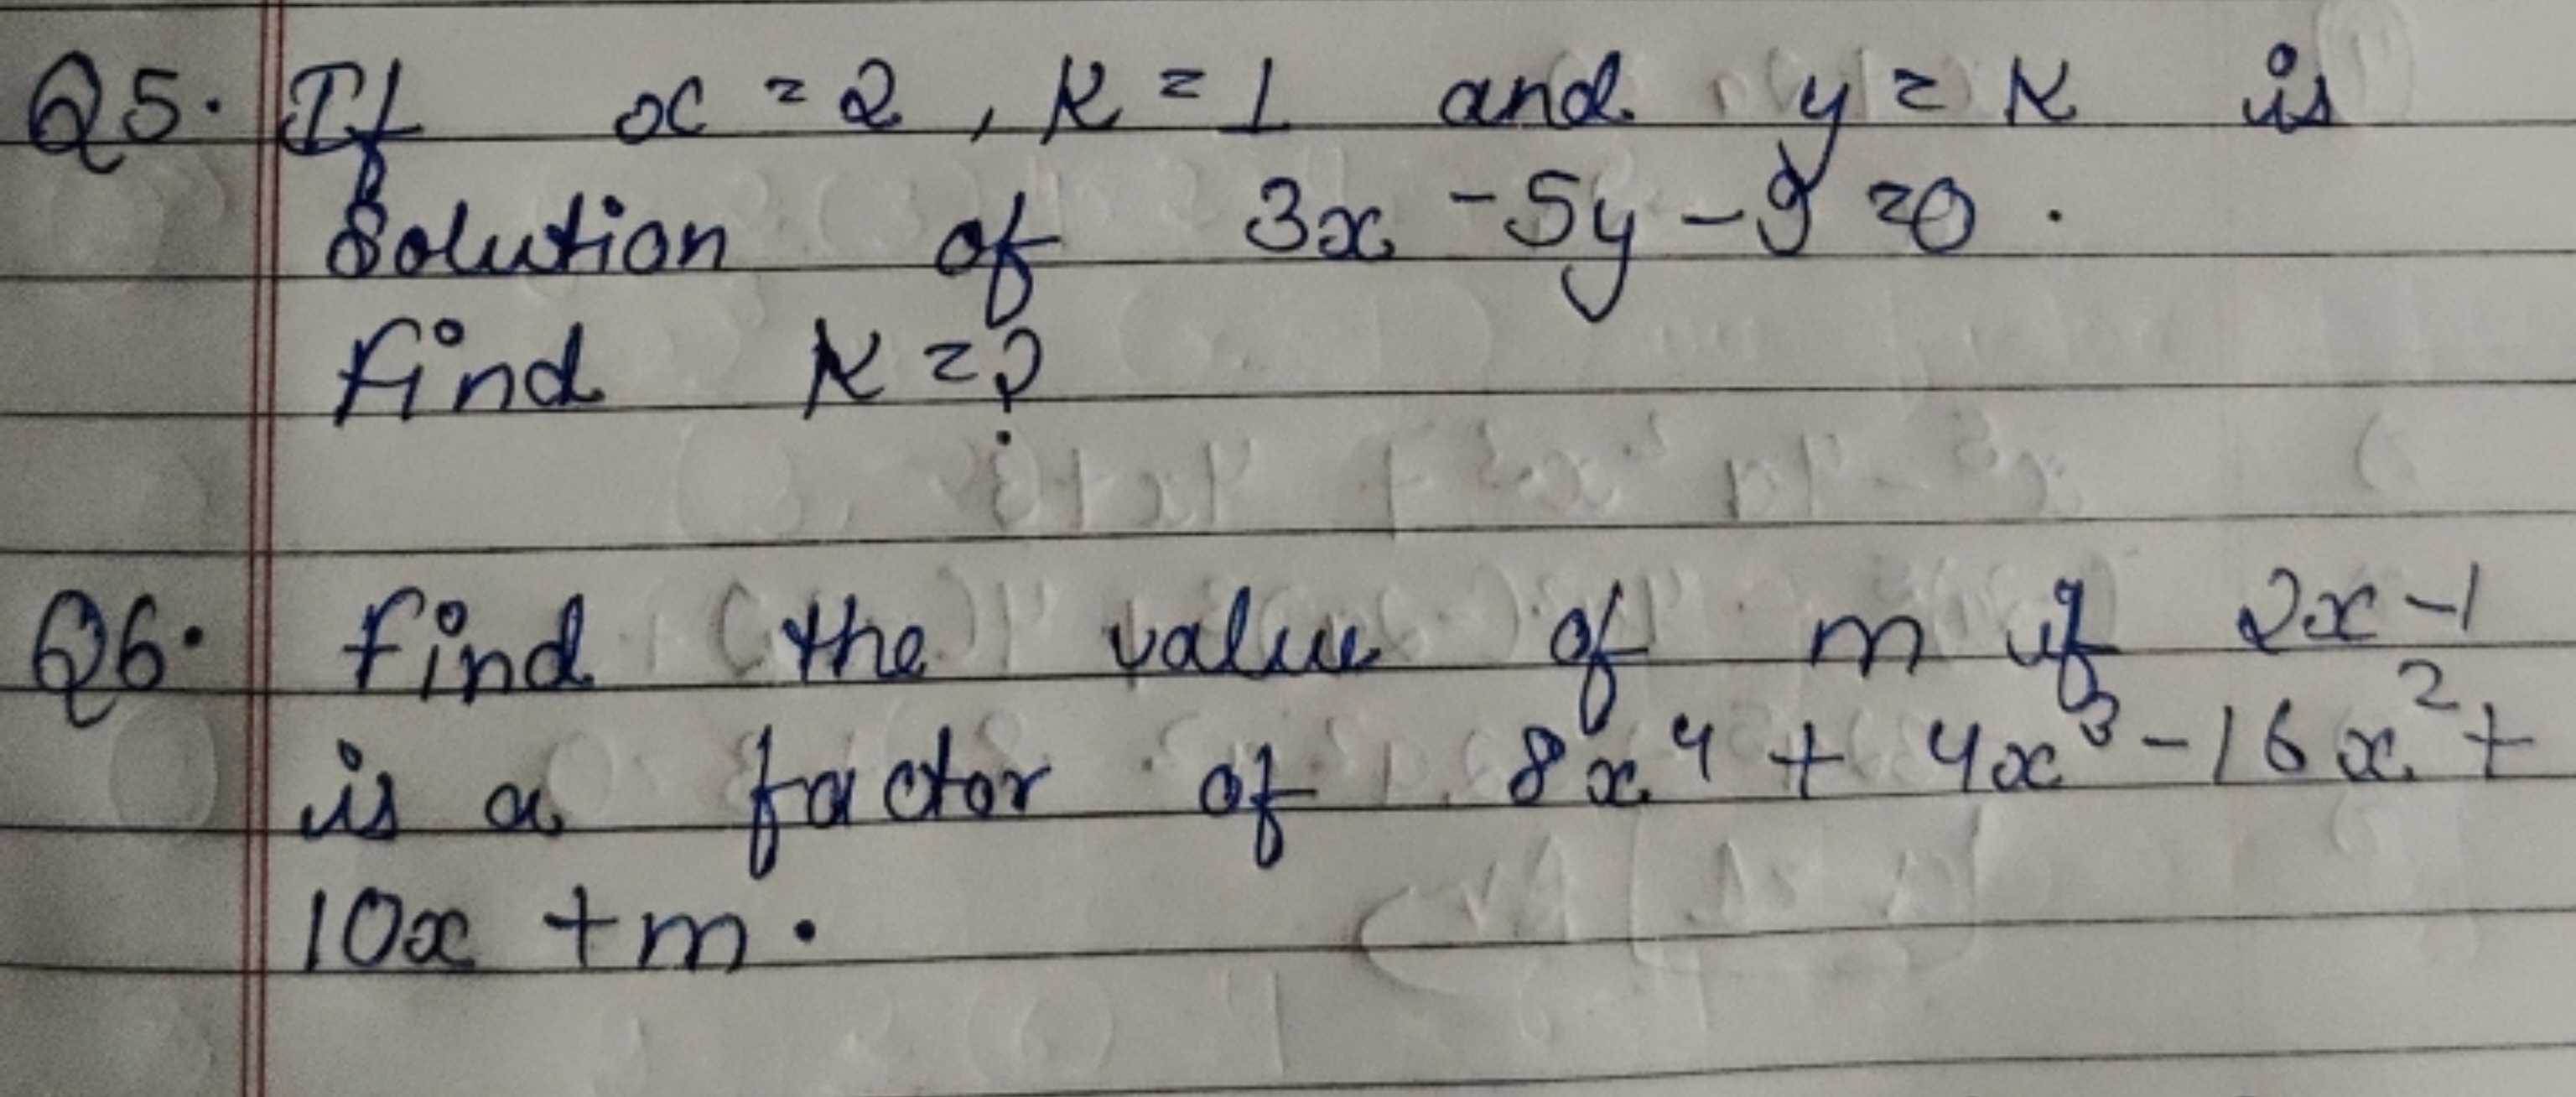 Q5. If x = 2, K = 1 and y = K is
solution of 3x - 5y - 9 = 0.
find K = ?
Q6. find the value of m if 2x - 1
is a factor of 8x⁴ + 4x³ - 16x² +
10x + m.